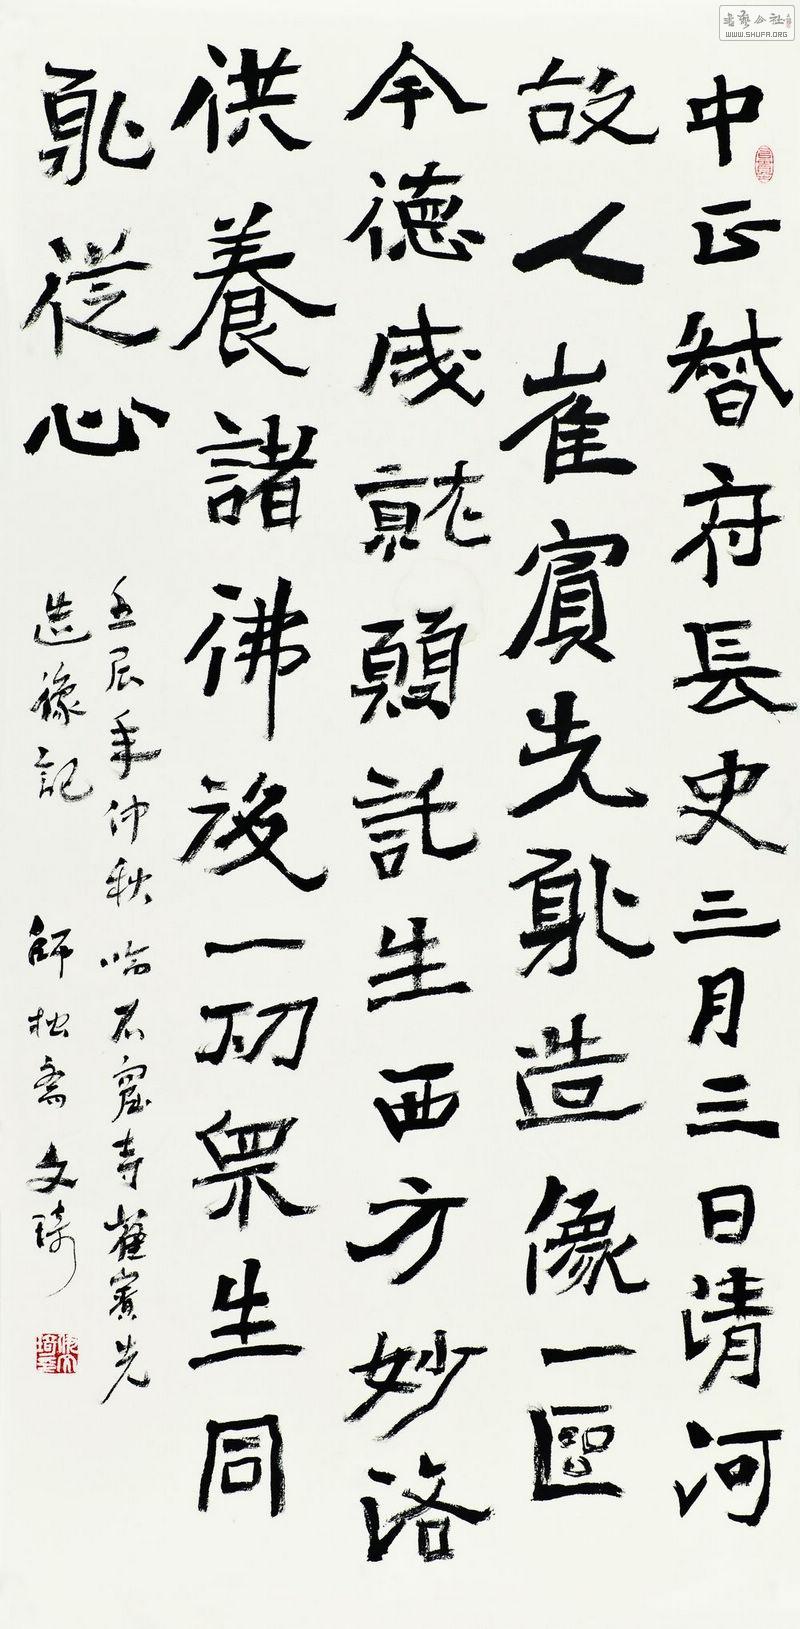 中正督府長史三月三日清河
故人崔賓先躭造像一區
今德成就願託生西方妙洛
供養諸佛後一切衆生同
躭從心
壬辰年仲秋臨石窟寺崔賓先
造像記 師拙齋文琦
書藝公社
WWW.SHUFA.ORG